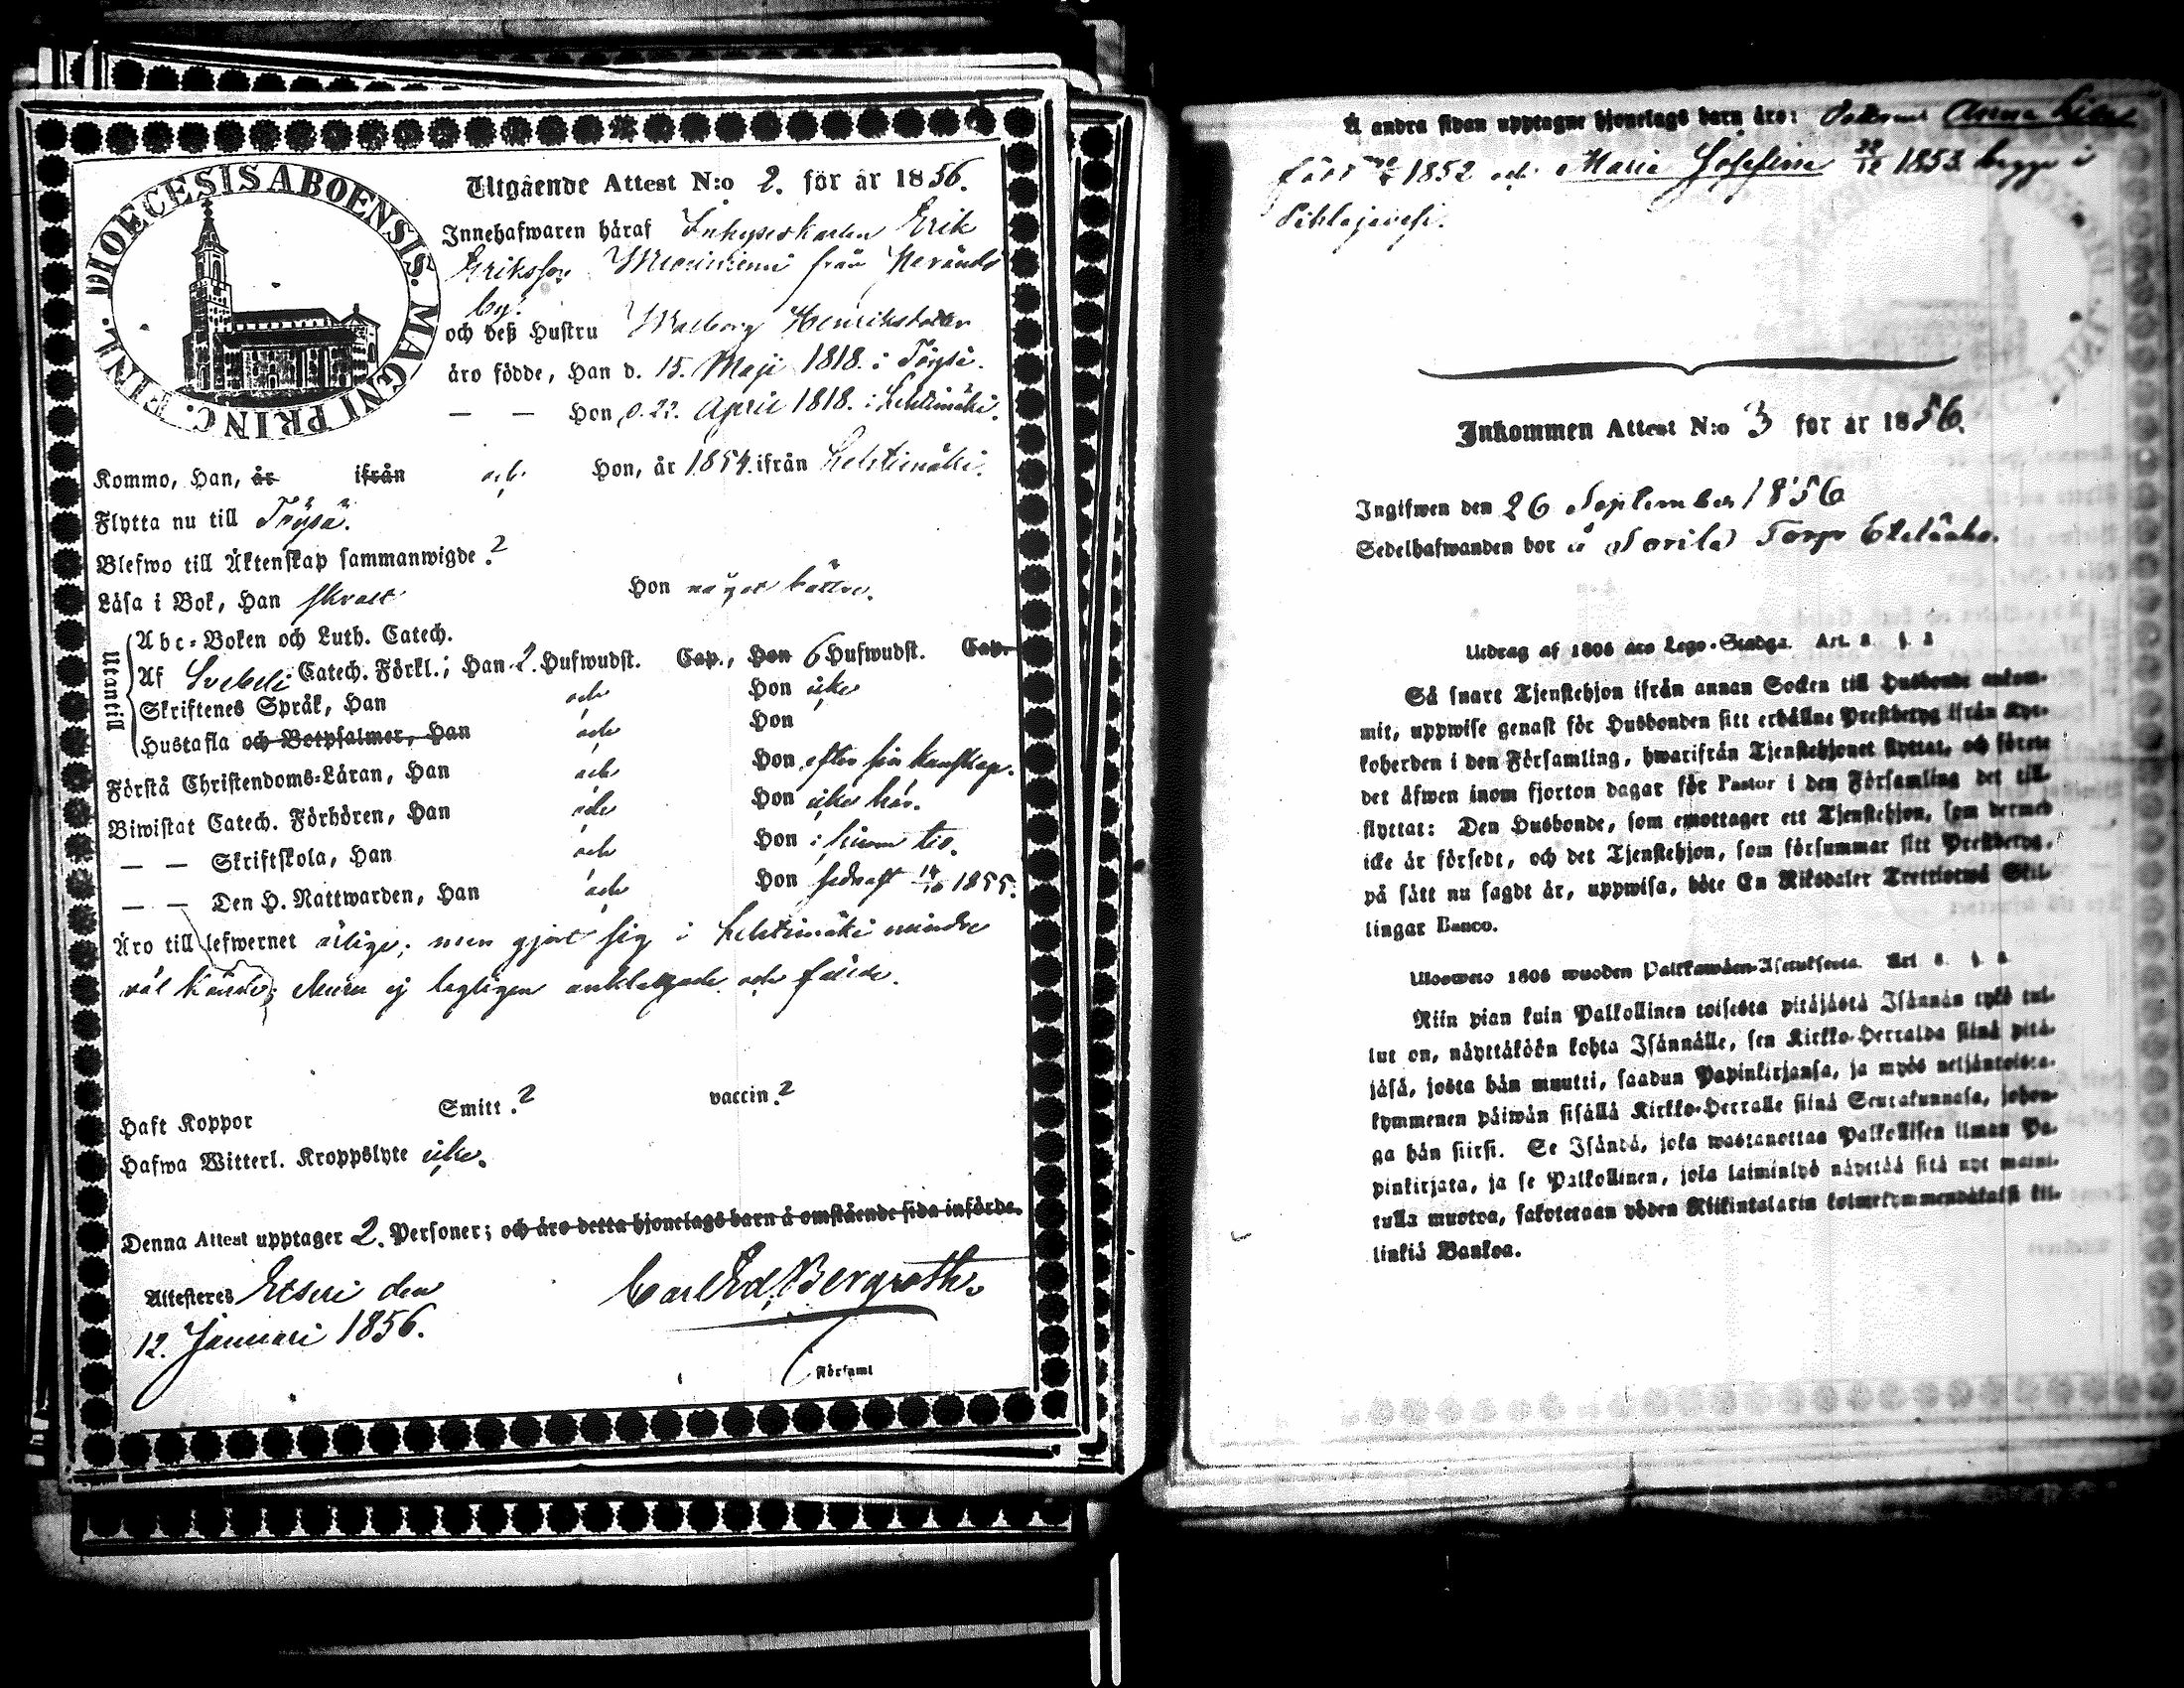 DIOECESIS ABOENSIS. MAGNI PRINC. FINL.
Utgående Attest N:o 2. för år 1856.
Innehafwaren häraf Inhyseskarlen Erik
Eriksson från
by.
och deß Hustru Walborg Henriksdotter
äro födde, Han d. 15. Maji 1818. i Töysä.
— — Hon d. 22. April 1818. i Lehtimäki.
Kommo, Han, år ifrån och Hon, år 1854. ifrån Lehtimäki.
Flytta nu till Töysä.
Blefwo till Äktenskap sammanwigde. ?
Läsa i Bok, Han skralt Hon något bättre.
Utantill
Abc-Boken och Luth. Catech.
Af Svebeli Catech. Förkl.; Han 2. Hufwudst. Cap., Hon 6 Hufwudst. Cap.
Skriftenes Språk, Han och Hon icke
Hustafla och Botpsalmer, Han och Hon
Förstå Christendoms-Läran, Han och Hon efter sin kunskap.
Biwistat Catech. Förhören, Han och Hon icke här.
— — Skriftskola, Han och Hon i sinom tid.
— — Den H. Nattwarden, Han och Hon sednast 14/10 1855.
Äro till lefwernet ärlige; men gjort sig i Lehtimäki mindre
väl kände; ej lagligen anklagade och fälde.
Haft Koppor Smitt. ? vaccin. ?
Hafwa Witterl. Kroppslyte icke.
Denna Attest upptager 2. Personer; och äro detta hjonelags barn å omstående sida införde.
Attesteres Etseri den
12. Januari 1856.
Carl Ed. Bergroth
Församl
Å andra sidan upptagne hjonelags barn äro: Anna
född 1852 och Maria Josefina 1853. begge i
Pihlajavesi.
Inkommen Attest N:o 3 för år 1856.
Ingifwen den 26 September 1856
Sedelhafwanden bor å Torp
Utdrag af 1805 års Lego-Stadga. Art. 8. §. 2
Så snart Tjenstehjon ifrån annan Socken till Husbonde ankom-
mit, uppwise genast för Husbonden sitt erhållne Prestbetyg ifrån Kyr-
koherden i den Församling, hwarifrån Tjenstehjonet flyttat, och förete
det äfwen inom fjorton dagar för Pastor i den Församling det till-
flyttat: Den Husbonde, som emottager ett Tjenstehjon, som dermed
icke är försedt, och det Tjenstehjon, som försummar sitt Prestbetyg,
på sätt nu sagdt är, uppwisa, böte En Riksdaler Trettiotwå Skil-
lingar Banco.
Uloswetto 1805 wuoden Palkkawäen-Asetuksesta. Art. 8. §. 2
Niin pian kuin Palkollinen toisesta pitäjästä Isännän tykö tul-
lut on, näyttäköön kohta Isännälle, sen Kirkko-Herralda siinä pitä-
jäsä, josta hän muutti, saadun Papinkirjansa, ja myös neljäntoista-
kymmenen päiwän sisällä Kirkko-Herralle siinä Seurakunnasa, johon-
ga hän siirsi. Se Isändä, joka wastanottaa Palkollisen ilman Pa-
pinkirjata, ja se Palkollinen, jola laiminlyö näyttää sitä nyt maini-
tulla muotoa, sakotetaan yhden Riikintalarin kolmekymmendäkaksi kil-
linkiä Bankoa.